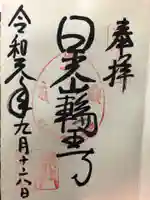 奉拝
日光山輪王寺
令和元年九月十六日